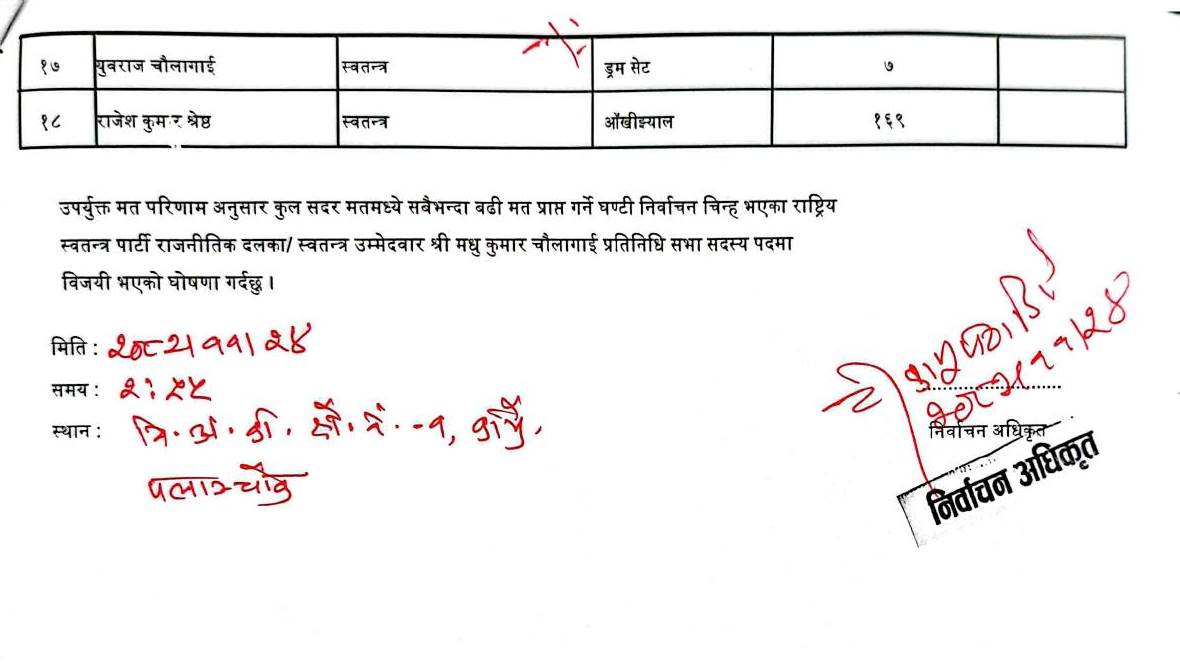 १७ युवराज चौलागाई स्वतन्त्र ड्रम सेट ७
१८ राजेश कुमार श्रेष्ठ स्वतन्त्र आँखीझ्याल १६९
उपर्युक्त मत परिणाम अनुसार कुल सदर मतमध्ये सबैभन्दा बढी मत प्राप्त गर्ने घण्टी निर्वाचन चिन्ह भएका राष्ट्रिय
स्वतन्त्र पार्टी राजनीतिक दलका/ स्वतन्त्र उम्मेदवार श्री मधु कुमार चौलागाई प्रतिनिधि सभा सदस्य पदमा
विजयी भएको घोषणा गर्दछु ।
मिति : २०८२।११।२४
समय : २:५५
स्थान : नि. अ. का. क्षे. नं. -१, काभ्रे,
पलाञ्चोक
२०८२।११।२४
निर्वाचन अधिकृत
निर्वाचन अधिकृत